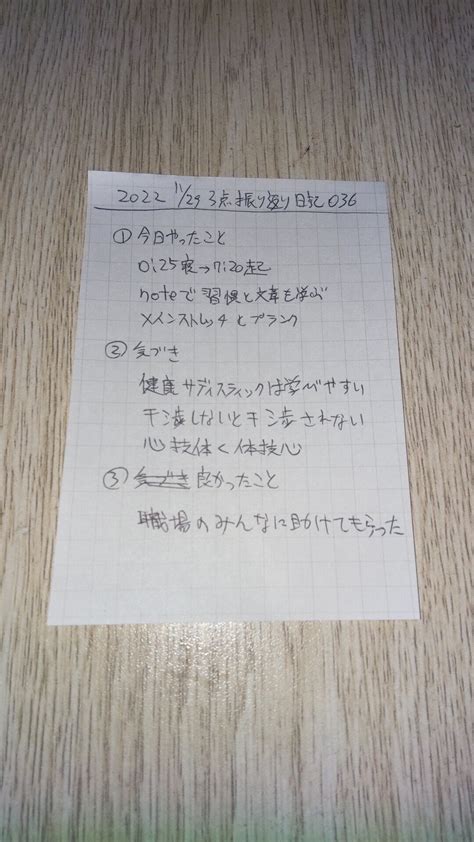 2022 11/29 3点振り返り日記036
① 今日やったこと
0:25寝→7:20起
noteで習慣と文章を学ぶ
メインストレッチとプランク
② 気づき
健康サディスティックは学べやすい
干渉しないと干渉されない
心技体く体技心
③ 気づき 良かったこと
職場のみんなに助けてもらった